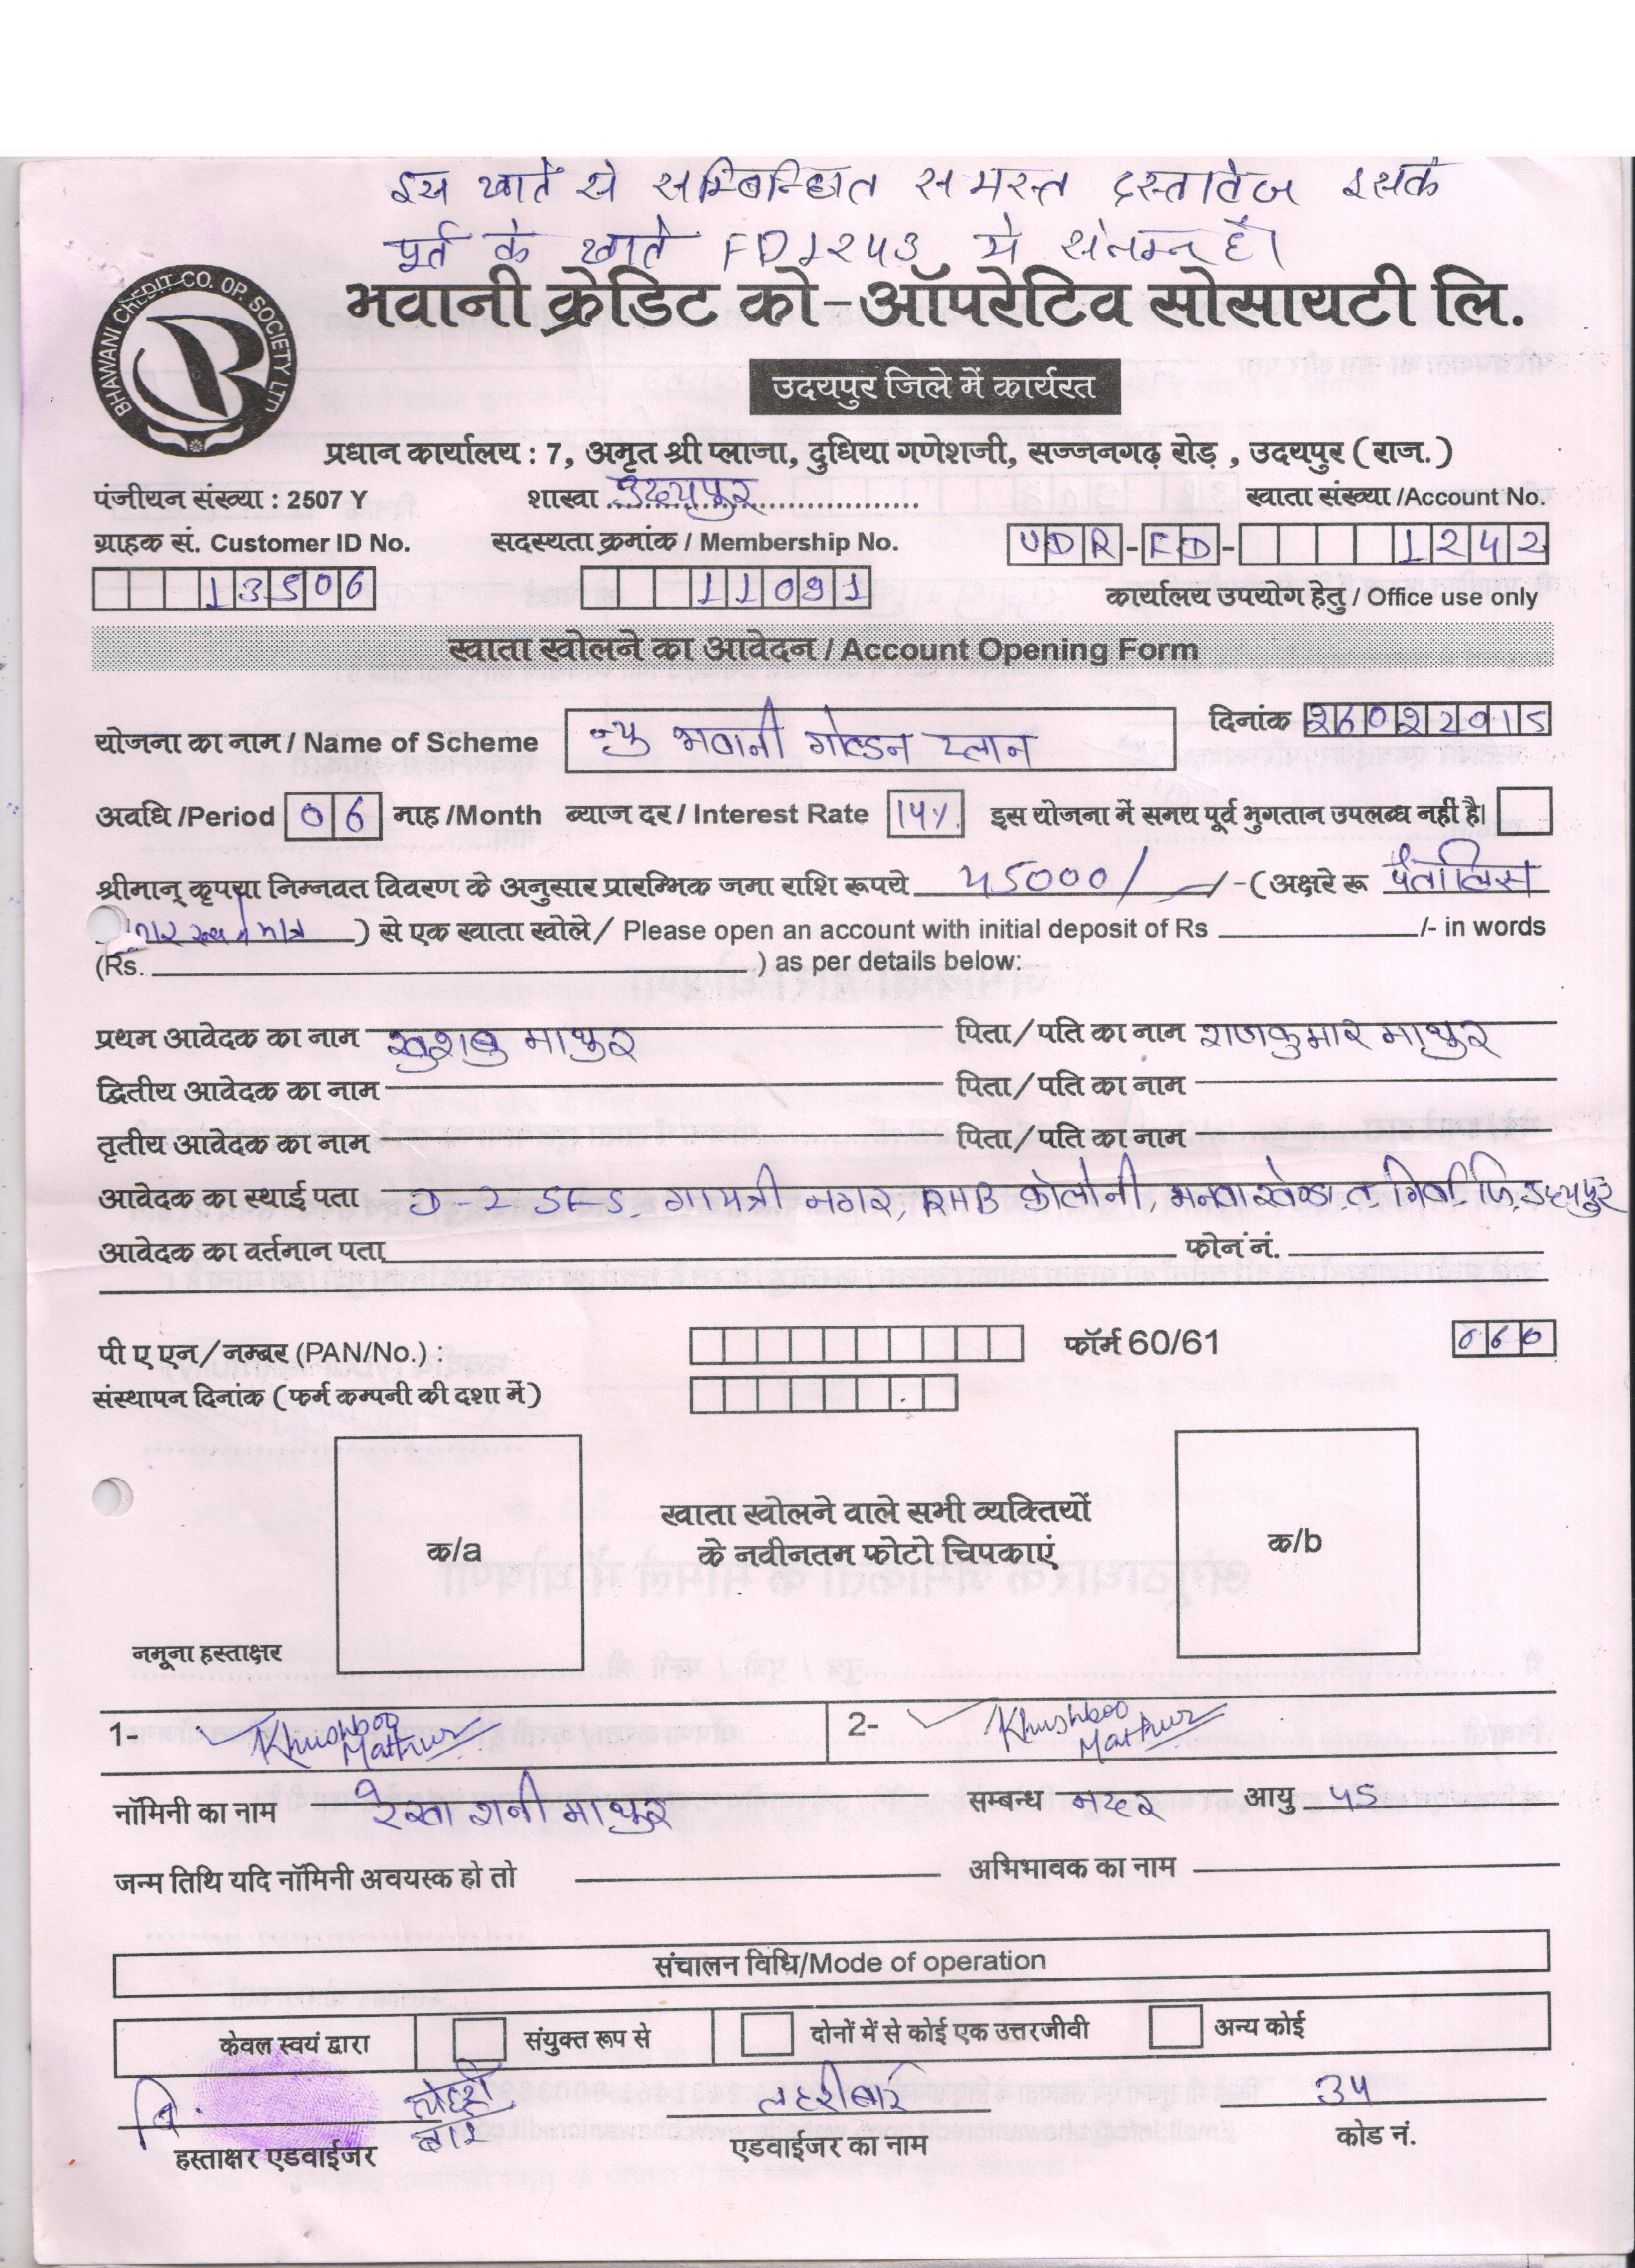 इस खाते से सम्बिन्धित समस्त दस्तावेज इसके
पूर्व के खाते FD1243 मे संलग्न है।
BHAWANI CREDIT CO. OP. SOCIETY LTD
भवानी क्रेडिट को-ऑपरेटिव सोसायटी लि.
उदयपुर जिले में कार्यरत
प्रधान कार्यालय : 7, अमृत श्री प्लाजा, दुधिया गणेशजी, सज्जनगढ़ रोड़ , उदयपुर ( राज. )
पंजीयन संख्या : 2507 Y शाखा उदयपुर खाता संख्या /Account No.
ग्राहक सं. Customer ID No. सदस्यता क्रमांक / Membership No. UDR-FD- 1242
13506 11091 कार्यालय उपयोग हेतु / Office use only
खाता खोलने का आवेदन / Account Opening Form
योजना का नाम / Name of Scheme न्यु भवानी गोल्डन प्लान दिनांक 26022015
अवधि /Period 06 माह /Month ब्याज दर / Interest Rate 14% इस योजना में समय पूर्व भुगतान उपलब्ध नहीं है।
श्रीमान् कृपया निम्नवत विवरण के अनुसार प्रारम्भिक जमा राशि रूपये 45000/ /-( अक्षरे रू पैतालिस
मात्र ) से एक खाता खोले / Please open an account with initial deposit of Rs /- in words
(Rs. ) as per details below:
प्रथम आवेदक का नाम खुशबु माथुर पिता / पति का नाम राजकुमार माथुर
द्वितीय आवेदक का नाम पिता / पति का नाम
तृतीय आवेदक का नाम पिता / पति का नाम
आवेदक का स्थाई पता D-2 SFS. गायत्री नगर, RHB कोलोनी, मनवाखेडा त. गिर्वा जि. उदयपुर
आवेदक का वर्तमान पता फोन नं.
पी ए एन / नम्बर (PAN/No.) : फॉर्म 60/61 060
संस्थापन दिनांक ( फर्म कम्पनी की दशा में )
क/a खाता खोलने वाले सभी व्यक्तियों क/b
के नवीनतम फोटो चिपकाएं
नमूना हस्ताक्षर
1- Khushboo Mathur 2- Khushboo Mathur
नॉमिनी का नाम रेखा रानी माथुर सम्बन्ध मदर आयु 45
जन्म तिथि यदि नॉमिनी अवयस्क हो तो अभिभावक का नाम
संचालन विधि/Mode of operation
केवल स्वयं द्वारा संयुक्त रूप से दोनों में से कोई एक उत्तरजीवी अन्य कोई
नि. लेहरी बाई लहरीबाई 34
हस्ताक्षर एडवाईजर एडवाईजर का नाम कोड नं.